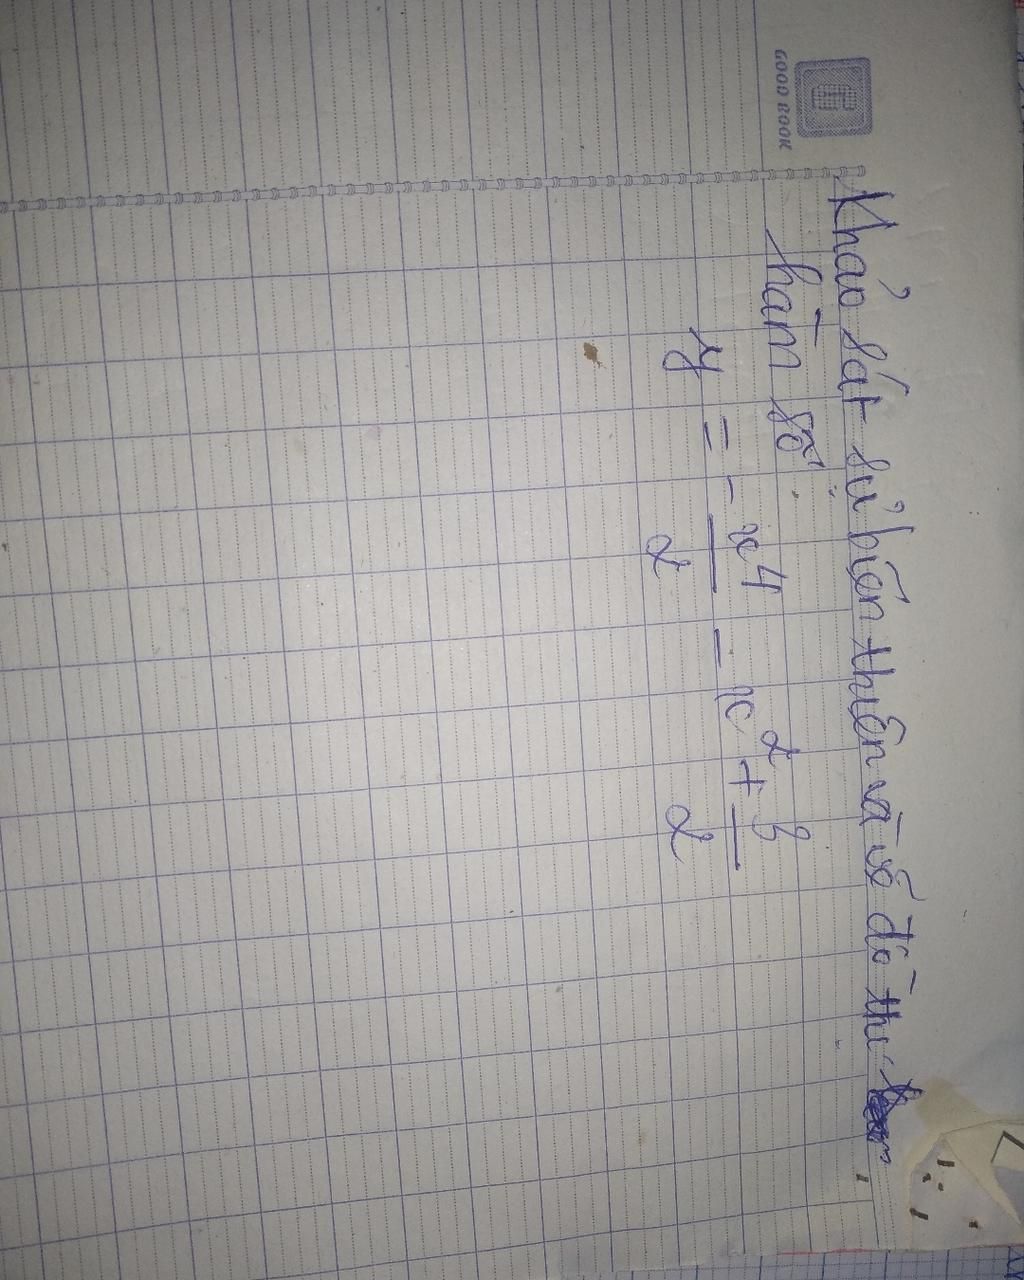 GOOD BOOK
Khảo sát sự biến thiên và vẽ đồ thị
hàm số
y = - x⁴/2 - x² + 3/2